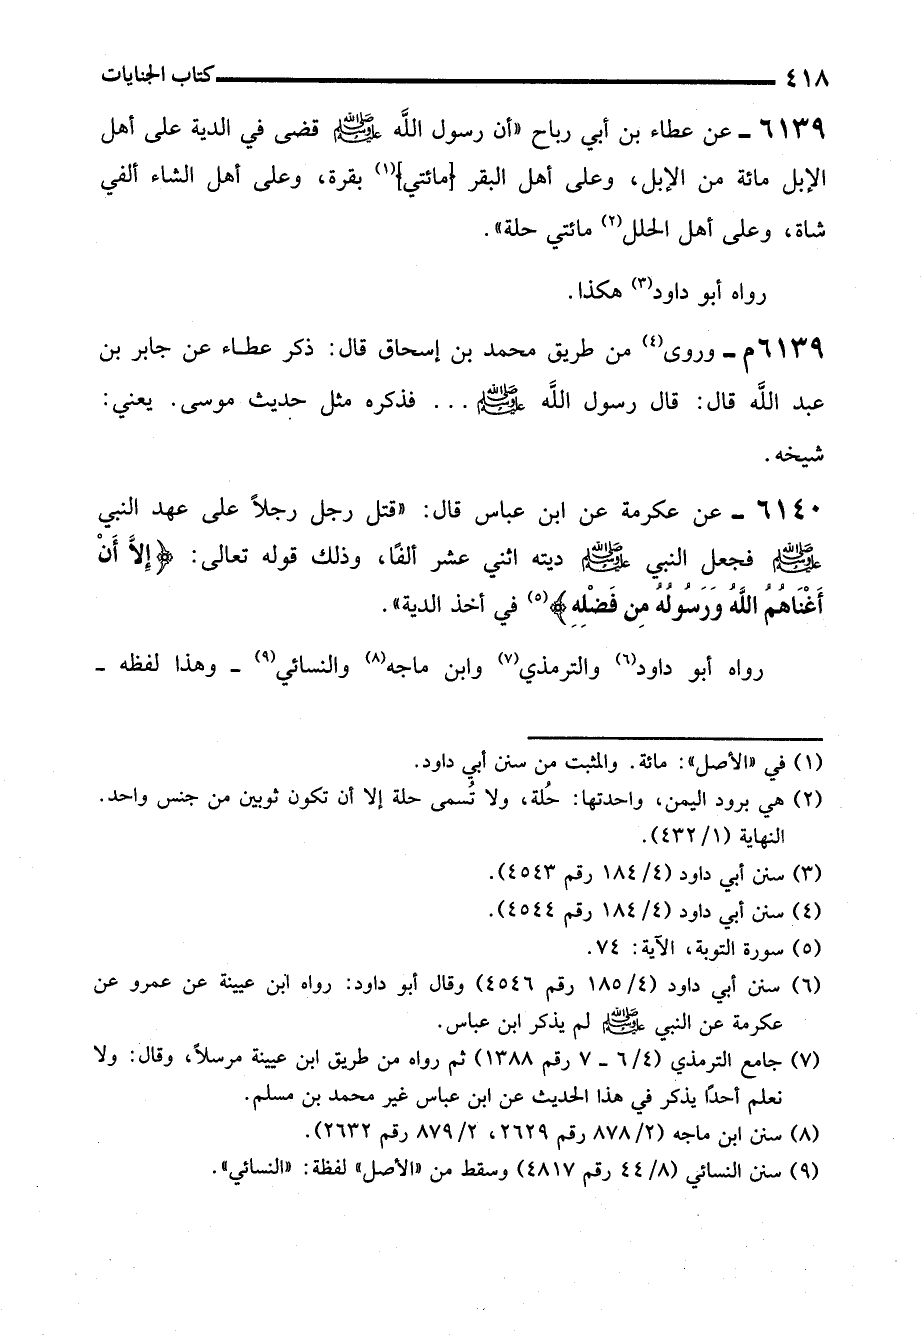 ٤١٨ كتاب الجنايات
٦١٣٩ ـ عن عطاء بن أبي رباح «أن رسول اللَّه ﷺ قضى في الدية على أهل
الإبل مائة من الإبل، وعلى أهل البقر [مائتي](١) بقرة، وعلى أهل الشاء ألفي
شاة، وعلى أهل الحلل(٢) مائتي حلة».
رواه أبو داود(٣) هكذا.
٦١٣٩م ـ وروى(٤) من طريق محمد بن إسحاق قال: ذكر عطاء عن جابر بن
عبد اللَّه قال: قال رسول اللَّه ﷺ ... فذكره مثل حديث موسى. يعني:
شيخه.
٦١٤٠ ـ عن عكرمة عن ابن عباس قال: «قتل رجل رجلاً على عهد النبي
ﷺ فجعل النبي ﷺ ديته اثني عشر ألفًا، وذلك قوله تعالى: ﴿إِلاَّ أَنْ
أَغْنَاهُمُ اللَّهُ وَرَسُولُهُ مِن فَضْلِهِ﴾(٥) في أخذ الدية».
رواه أبو داود(٦) والترمذي(٧) وابن ماجه(٨) والنسائي(٩) ـ وهذا لفظه ـ
(١) في «الأصل»: مائة. والمثبت من سنن أبي داود.
(٢) هي برود اليمن، واحدتها: حُلة، ولا تُسمى حلة إلا أن تكون ثوبين من جنس واحد.
النهاية (١/ ٤٣٢).
(٣) سنن أبي داود (٤/ ١٨٤ رقم ٤٥٤٣).
(٤) سنن أبي داود (٤/ ١٨٤ رقم ٤٥٤٤).
(٥) سورة التوبة، الآية: ٧٤.
(٦) سنن أبي داود (٤/ ١٨٥ رقم ٤٥٤٦) وقال أبو داود: رواه ابن عيينة عن عمرو عن
عكرمة عن النبي ﷺ لم يذكر ابن عباس.
(٧) جامع الترمذي (٤/ ٦ ـ ٧ رقم ١٣٨٨) ثم رواه من طريق ابن عيينة مرسلاً، وقال: ولا
نعلم أحدًا يذكر في هذا الحديث عن ابن عباس غير محمد بن مسلم.
(٨) سنن ابن ماجه (٢/ ٨٧٨ رقم ٢٦٢٩، ٢/ ٨٧٩ رقم ٢٦٣٢).
(٩) سنن النسائي (٨/ ٤٤ رقم ٤٨١٧) وسقط من «الأصل» لفظة: «النسائي».